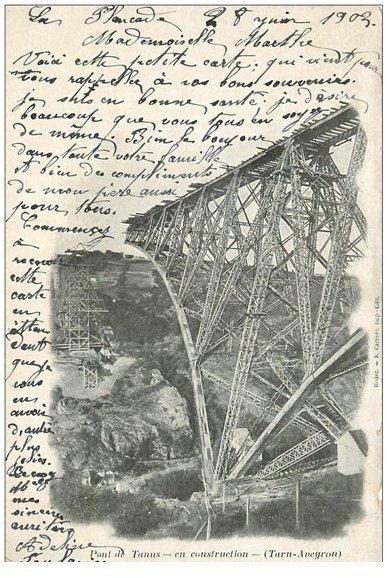 La Planade 28 juin 1903
Mademoiselle Marthe
Voici cette petite carte qui vient pour
vous rappelle à vos bons souvenirs.
je suis en bonne santé, je désire
beaucoup que vous tous en soyez
de même. Bien le bonjour
dans toute votre famille
et bien des compliments
de mon père aussi
pour tous.
Commencez
à
recevoir
cette
carte
en
atten
dant
que
je
vous
en
envoie
d'autre
plus
jolies.
Recevez
mes
sincères
amitiés
Adeline
Pont de Tanus — en construction — (Tarn-Aveyron)
Rodez. — E. Carrère, Imp.-Edit.